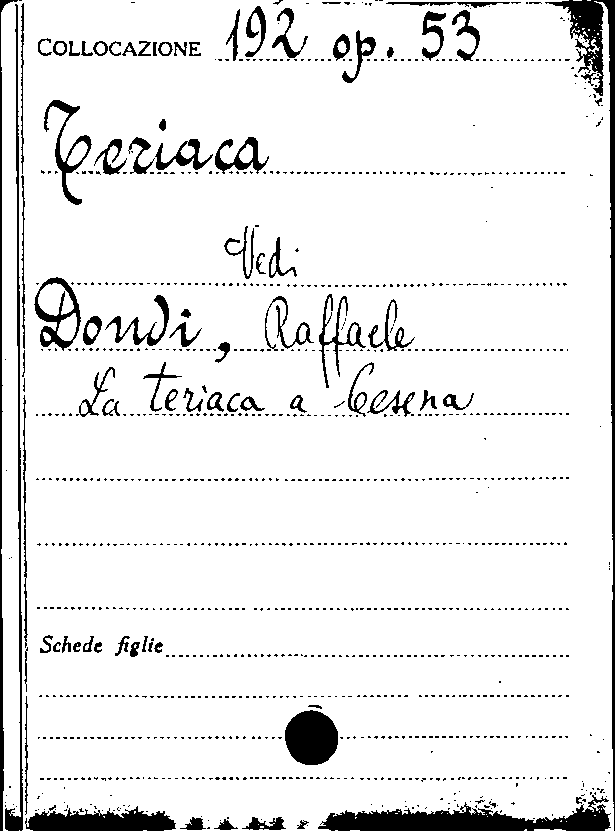 COLLOCAZIONE 192 op. 53
Teriaca
Vedi
Dondi, Raffaele
La teriaca a Cesena
Schede figlie